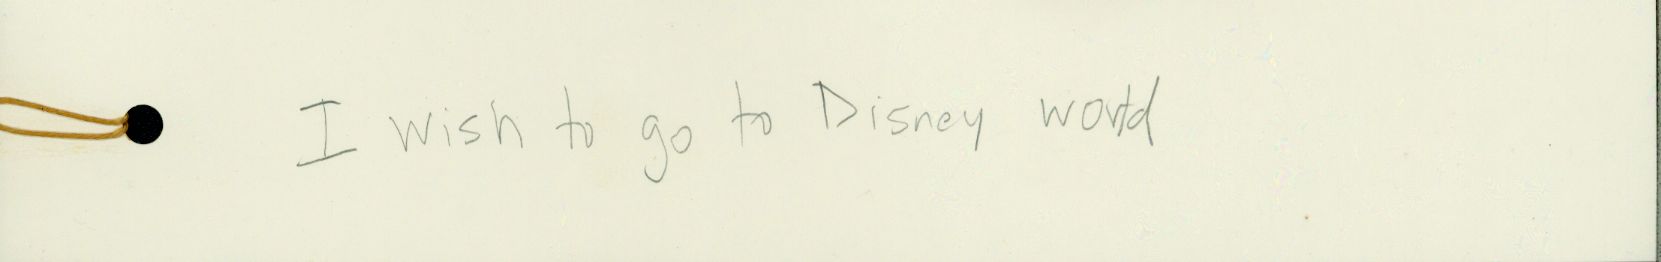 I wish to go to Disney world